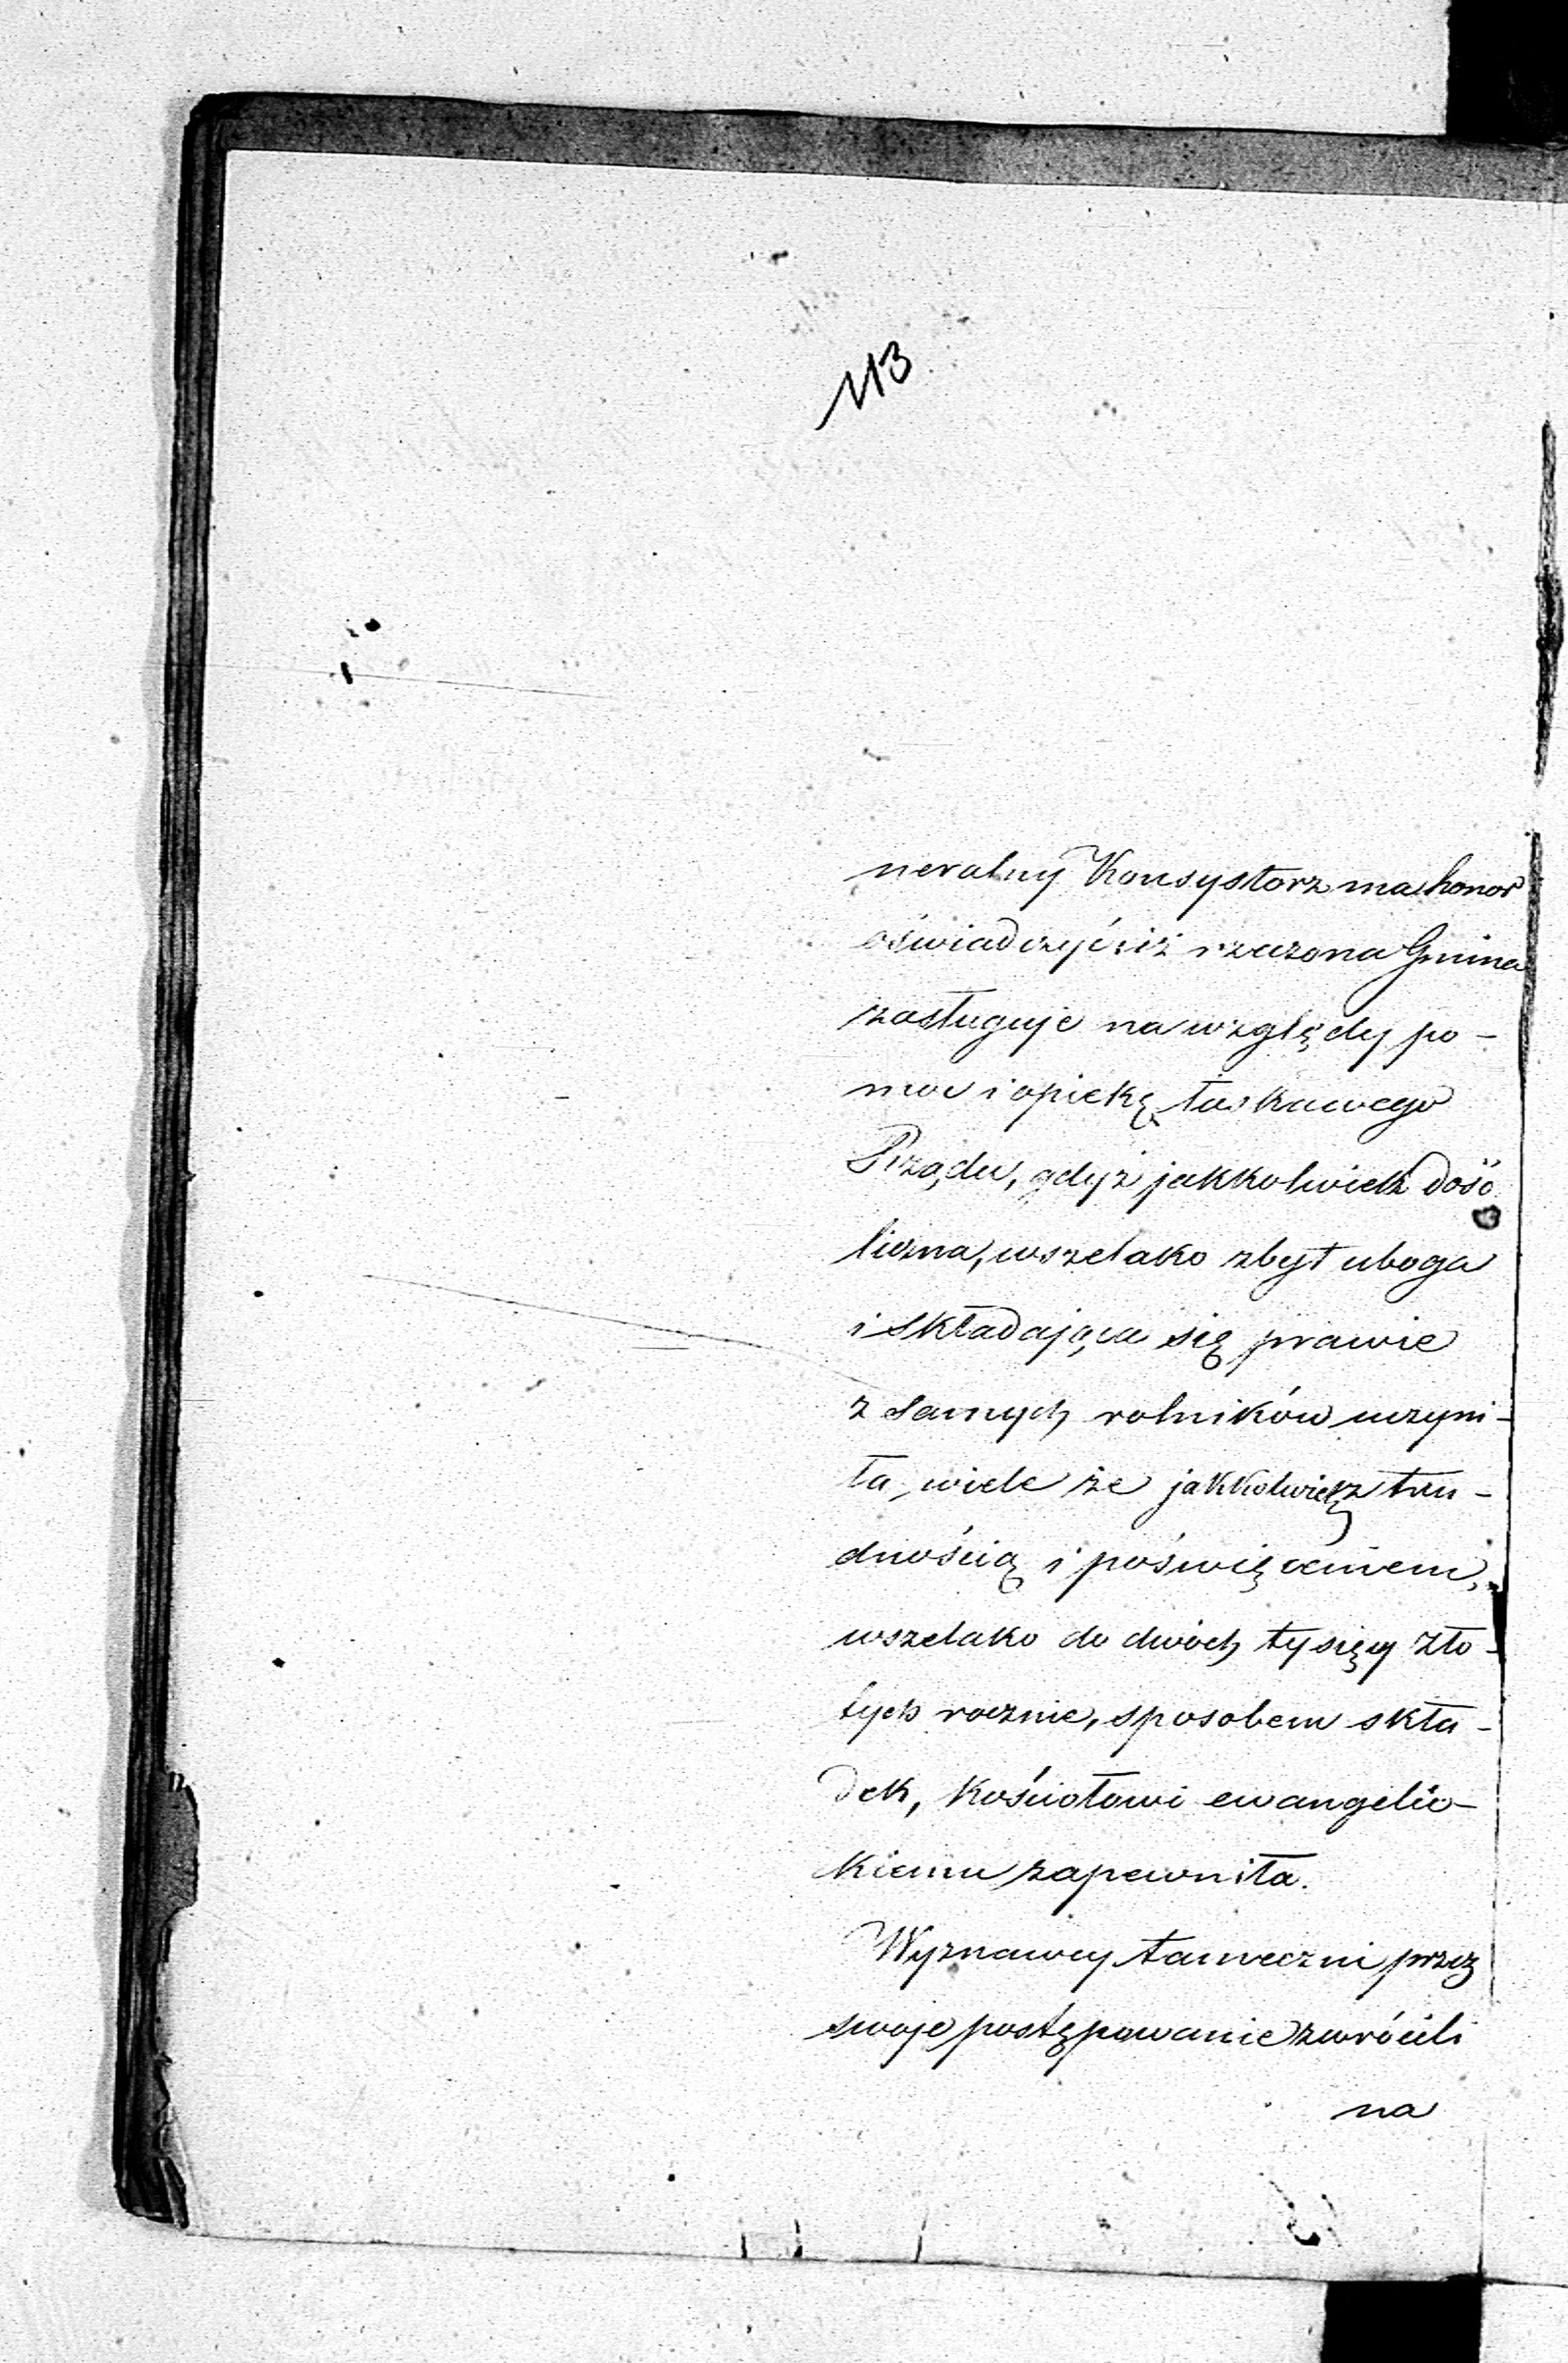 113
neralny Konsystorz ma honor
oświadczyć iż rzeczona Gmina
zasługuje na względy po-
moc i opiekę łaskawego
Rządu, gdyż jakkolwiek dość
liczna, wszelako zbyt uboga
i składająca się prawie
z samych rolników uczyni-
ła, wiele że jakkolwiek z tru-
dnością i poświęceniem,
wszelako do dwóch tysięcy zło-
tych rocznie, sposobem skła-
dek, kościołowi ewangelic-
kiemu zapewniła.
Wyznawcy tameczni przez
swoje postępowanie zwrócili
na